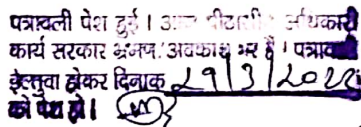 पत्रावली पेश हुई। आज पीठासीन अधिकारी
कार्य सरकार भ्रमण/अवकाश पर है। पत्रावली
होकर दिनांक 29/3/2022
को पेश हो।